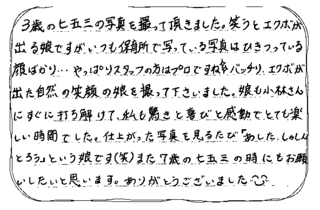 3歳の七五三の写真を撮って頂きました。笑うとエクボが
出る娘ですがいつも保育所で写っている写真はひきつっている
顔ばかり…やっぱりスタッフの方はプロですねバッチリ、エクボが
出た自然の笑顔の娘を撮って下さいました。娘も小林さん
にすぐに打ち解けて、私も驚きと喜びと感動でとても楽
しい時間でした。仕上がった写真を見るたび「あした、しゃしん
とろう」という娘です(笑)また7歳の七五三の時にもお願
いしたいと思います。ありがとうございました